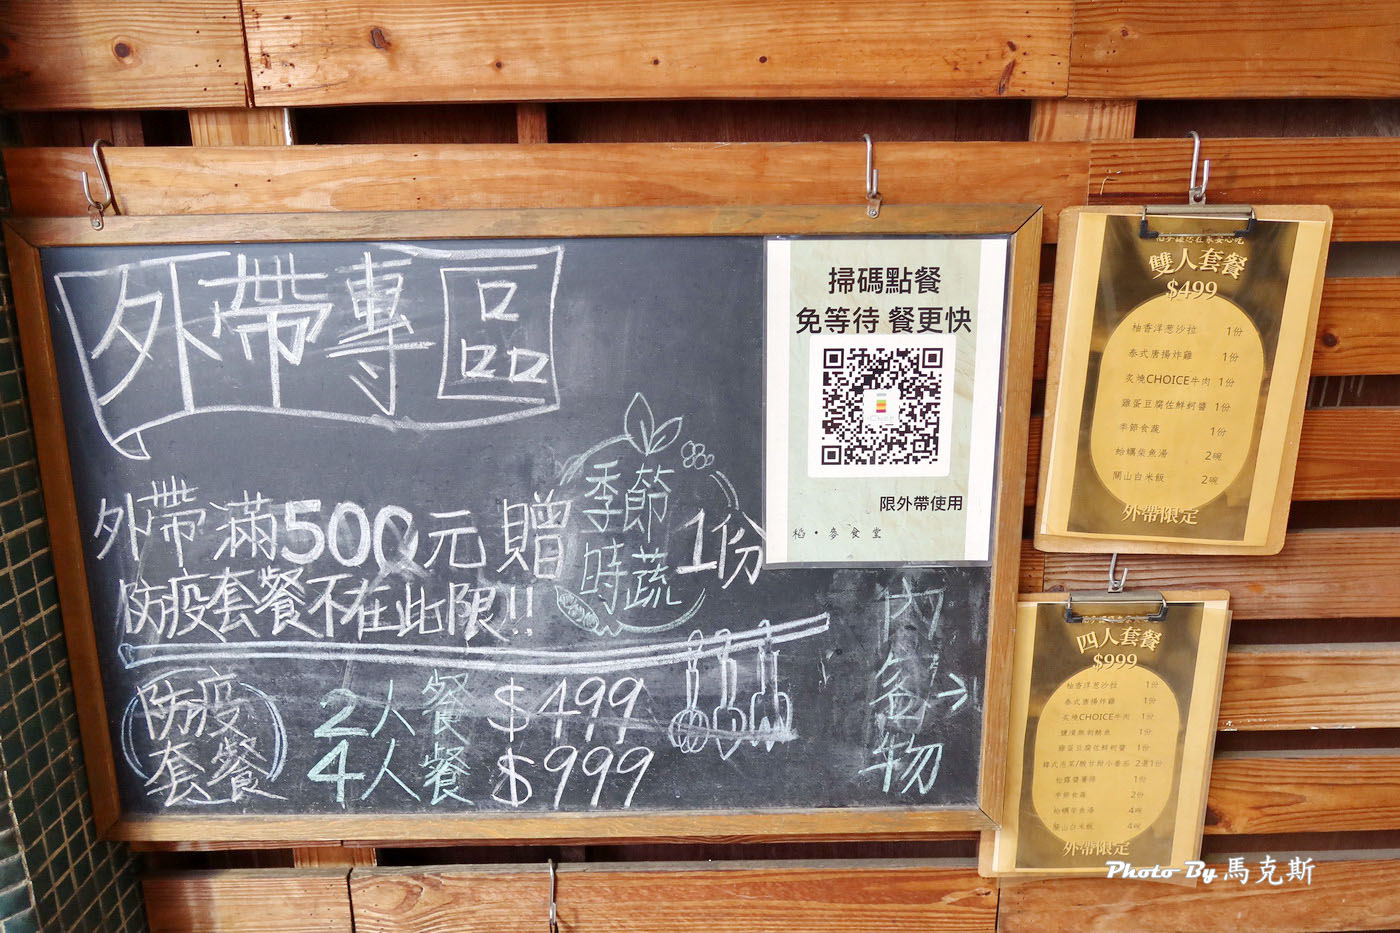 外帶專區
外帶滿500元贈季節時蔬1份
防疫套餐不在此限!!
防疫套餐
2人餐 $499
4人餐 $999
內容物→
掃碼點餐
免等待 餐更快
限外帶使用
稻・麥食堂
雙人套餐
$499
柚香洋蔥沙拉 1份
泰式唐揚炸雞 1份
炙燒CHOICE牛肉 1份
雞蛋豆腐佐鮮蚵醬 1份
季節食蔬 1份
蛤蠣柴魚湯 2碗
關山白米飯 2碗
外帶限定
四人套餐
$999
柚香洋蔥沙拉 1份
泰式唐揚炸雞 1份
炙燒CHOICE牛肉 1份
鹽漬無刺鯖魚 1份
雞蛋豆腐佐鮮蚵醬 1份
2選1份
松露醬薯條 1份
季節食蔬 2份
蛤蠣柴魚湯 4碗
關山白米飯 4碗
外帶限定
Photo By 馬克斯